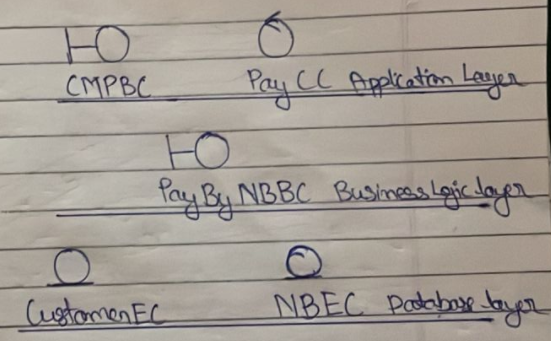 CMPBC PayCC Application Layer
Pay By NBBC Business Logic layer
CustomerEC NBEC Database layer